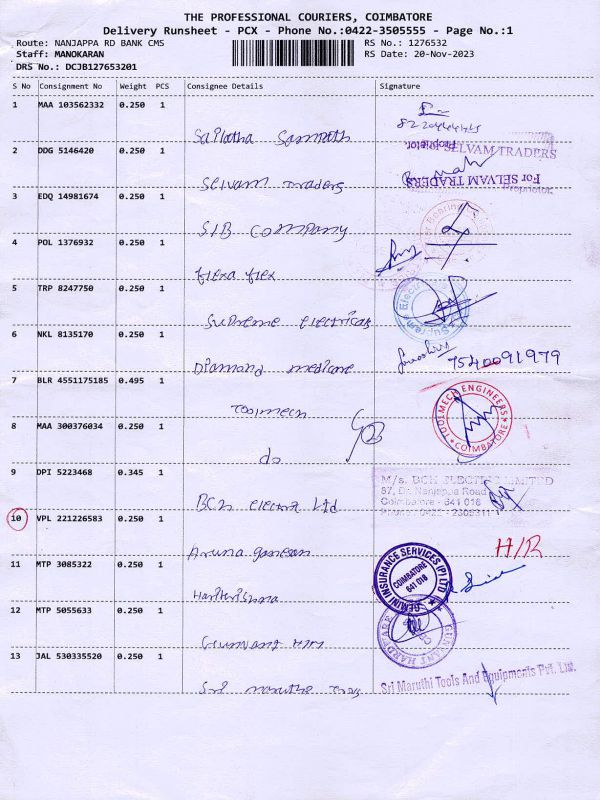 THE PROFESSIONAL COURIERS, COIMBATORE
Delivery Runsheet - PCX - Phone No.:0422-3505555 - Page No.:1
Route: NANJAPPA RD BANK CMS
RS No.: 1276532
Staff: MANOKARAN
RS Date: 20-Nov-2023
DRS No.: DCJB127653201
S No Consignment No Weight PCS Consignee Details Signature
1 MAA 103562332 0.250 1
2 DDG 5146420 0.250 1 Selvam Traders
SELVAM TRADERS
Proprietor.
For SELVAM TRADERS
Proprietor
3 EDQ 14981674 0.250 1 SIB Company
4 POL 1376932 0.250 1 flexa flex
5 TRP 8247750 0.250 1 Supreme electricals
6 NKL 8135170 0.250 1 Diamond medicare
7540091979
7 BLR 4551175185 0.495 1 Toolmech
TOOLMECH ENGINEERS
COIMBATORE
8 MAA 300376034 0.250 1 do
9 DPI 5223468 0.345 1 BCH electric Ltd
M/s. BCH ELECTRIC LIMITED
87, Dr. Nanjappa Road
Coimbatore - 641 018
10 VPL 221226583 0.250 1 Aruna ganesan
H/R
11 MTP 3085322 0.250 1 Harikrishna
GEMINI INSURANCE SERVICES (P) LTD
COIMBATORE
641 018
12 MTP 5055633 0.250 1 Gunvant
GUNVANT HARDWARE
13 JAL 530335520 0.250 1 Sri marutha
Sri Maruthi Tools And Equipments Pvt. Ltd.